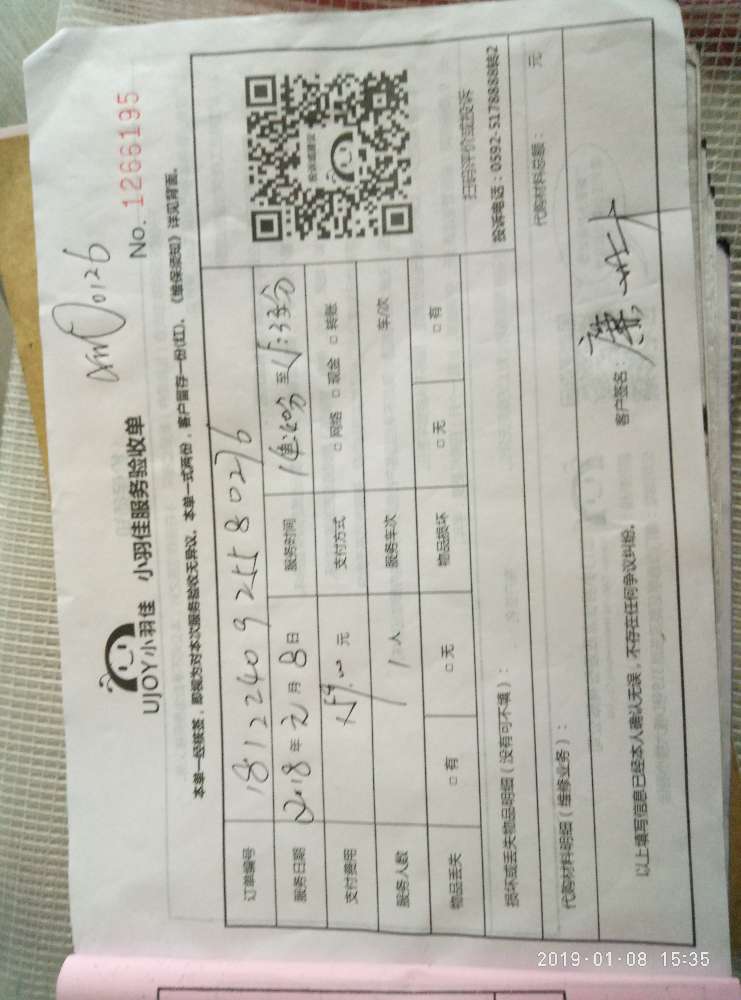 UJOY小羽佳 小羽佳服务验收单
No. 1266195
本单一经核签，即视为对本次服务验收无异议，本单一式两份，客户留存一份(红)。《维保须知》详见背面。
订单编号 1812240925580276
服务日期 2018年元月8日 服务时间 至
支付费用 元 支付方式 □ 网络 □ 现金 □ 转账
服务人数 1人 服务车次 车/次
物品丢失 □ 有 □ 无 物品损坏 □ 无 □ 有
扫码评价或投诉
投诉电话：0592-5178888转2
损坏或丢失物品明细（没有可不填）：
代购材料明细（维修业务）： 代购材料总额： 元
以上填写信息已经本人确认无误，不存在任何争议纠纷。 客户签名：
2019-01-08 15:35